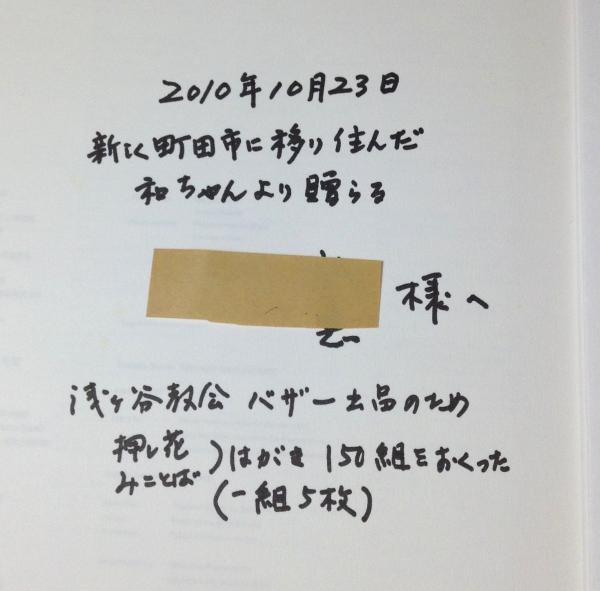 2010年10月23日
新しく町田市に移り住んだ
和ちゃんより贈らる
様へ
浅ヶ谷教会 バザー出品のため
押し花
みことば
)はがき150組をおくった
(一組5枚)